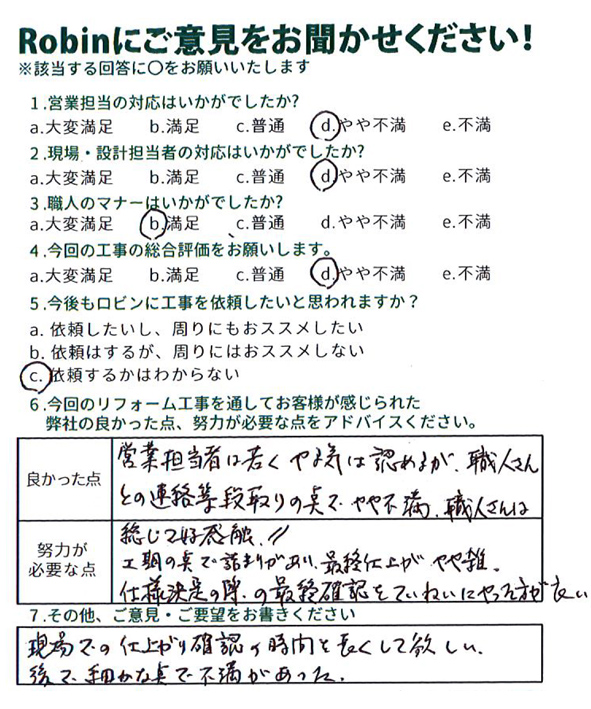 Robinにご意見をお聞かせください!
※該当する回答に〇をお願いいたします
1.営業担当の対応はいかがでしたか?
a.大変満足 b.満足 c.普通 d.やや不満 e.不満
2.現場・設計担当者の対応はいかがでしたか?
a.大変満足 b.満足 c.普通 d.やや不満 e.不満
3.職人のマナーはいかがでしたか?
a.大変満足 b.満足 c.普通 d.やや不満 e.不満
4.今回の工事の総合評価をお願いします。
a.大変満足 b.満足 c.普通 d.やや不満 e.不満
5.今後もロビンに工事を依頼したいと思われますか?
a. 依頼したいし、周りにもおススメしたい
b. 依頼はするが、周りにはおススメしない
c. 依頼するかはわからない
6.今回のリフォーム工事を通してお客様が感じられた
弊社の良かった点、努力が必要な点をアドバイスください。
良かった点
営業担当者は若くやる気は認めるが、職人さん
との連絡等段取りの点でやや不満。職人さんは
総じて好感触。〃
努力が
必要な点
工期の点で詰まりがあり、最終仕上がやや雑。
仕様決定の際の最終確認をていねいにやった方が良い
7.その他、ご意見・ご要望をお書きください
現場での仕上がり確認の時間を長くして欲しい。
後で細かな点で不満があった。